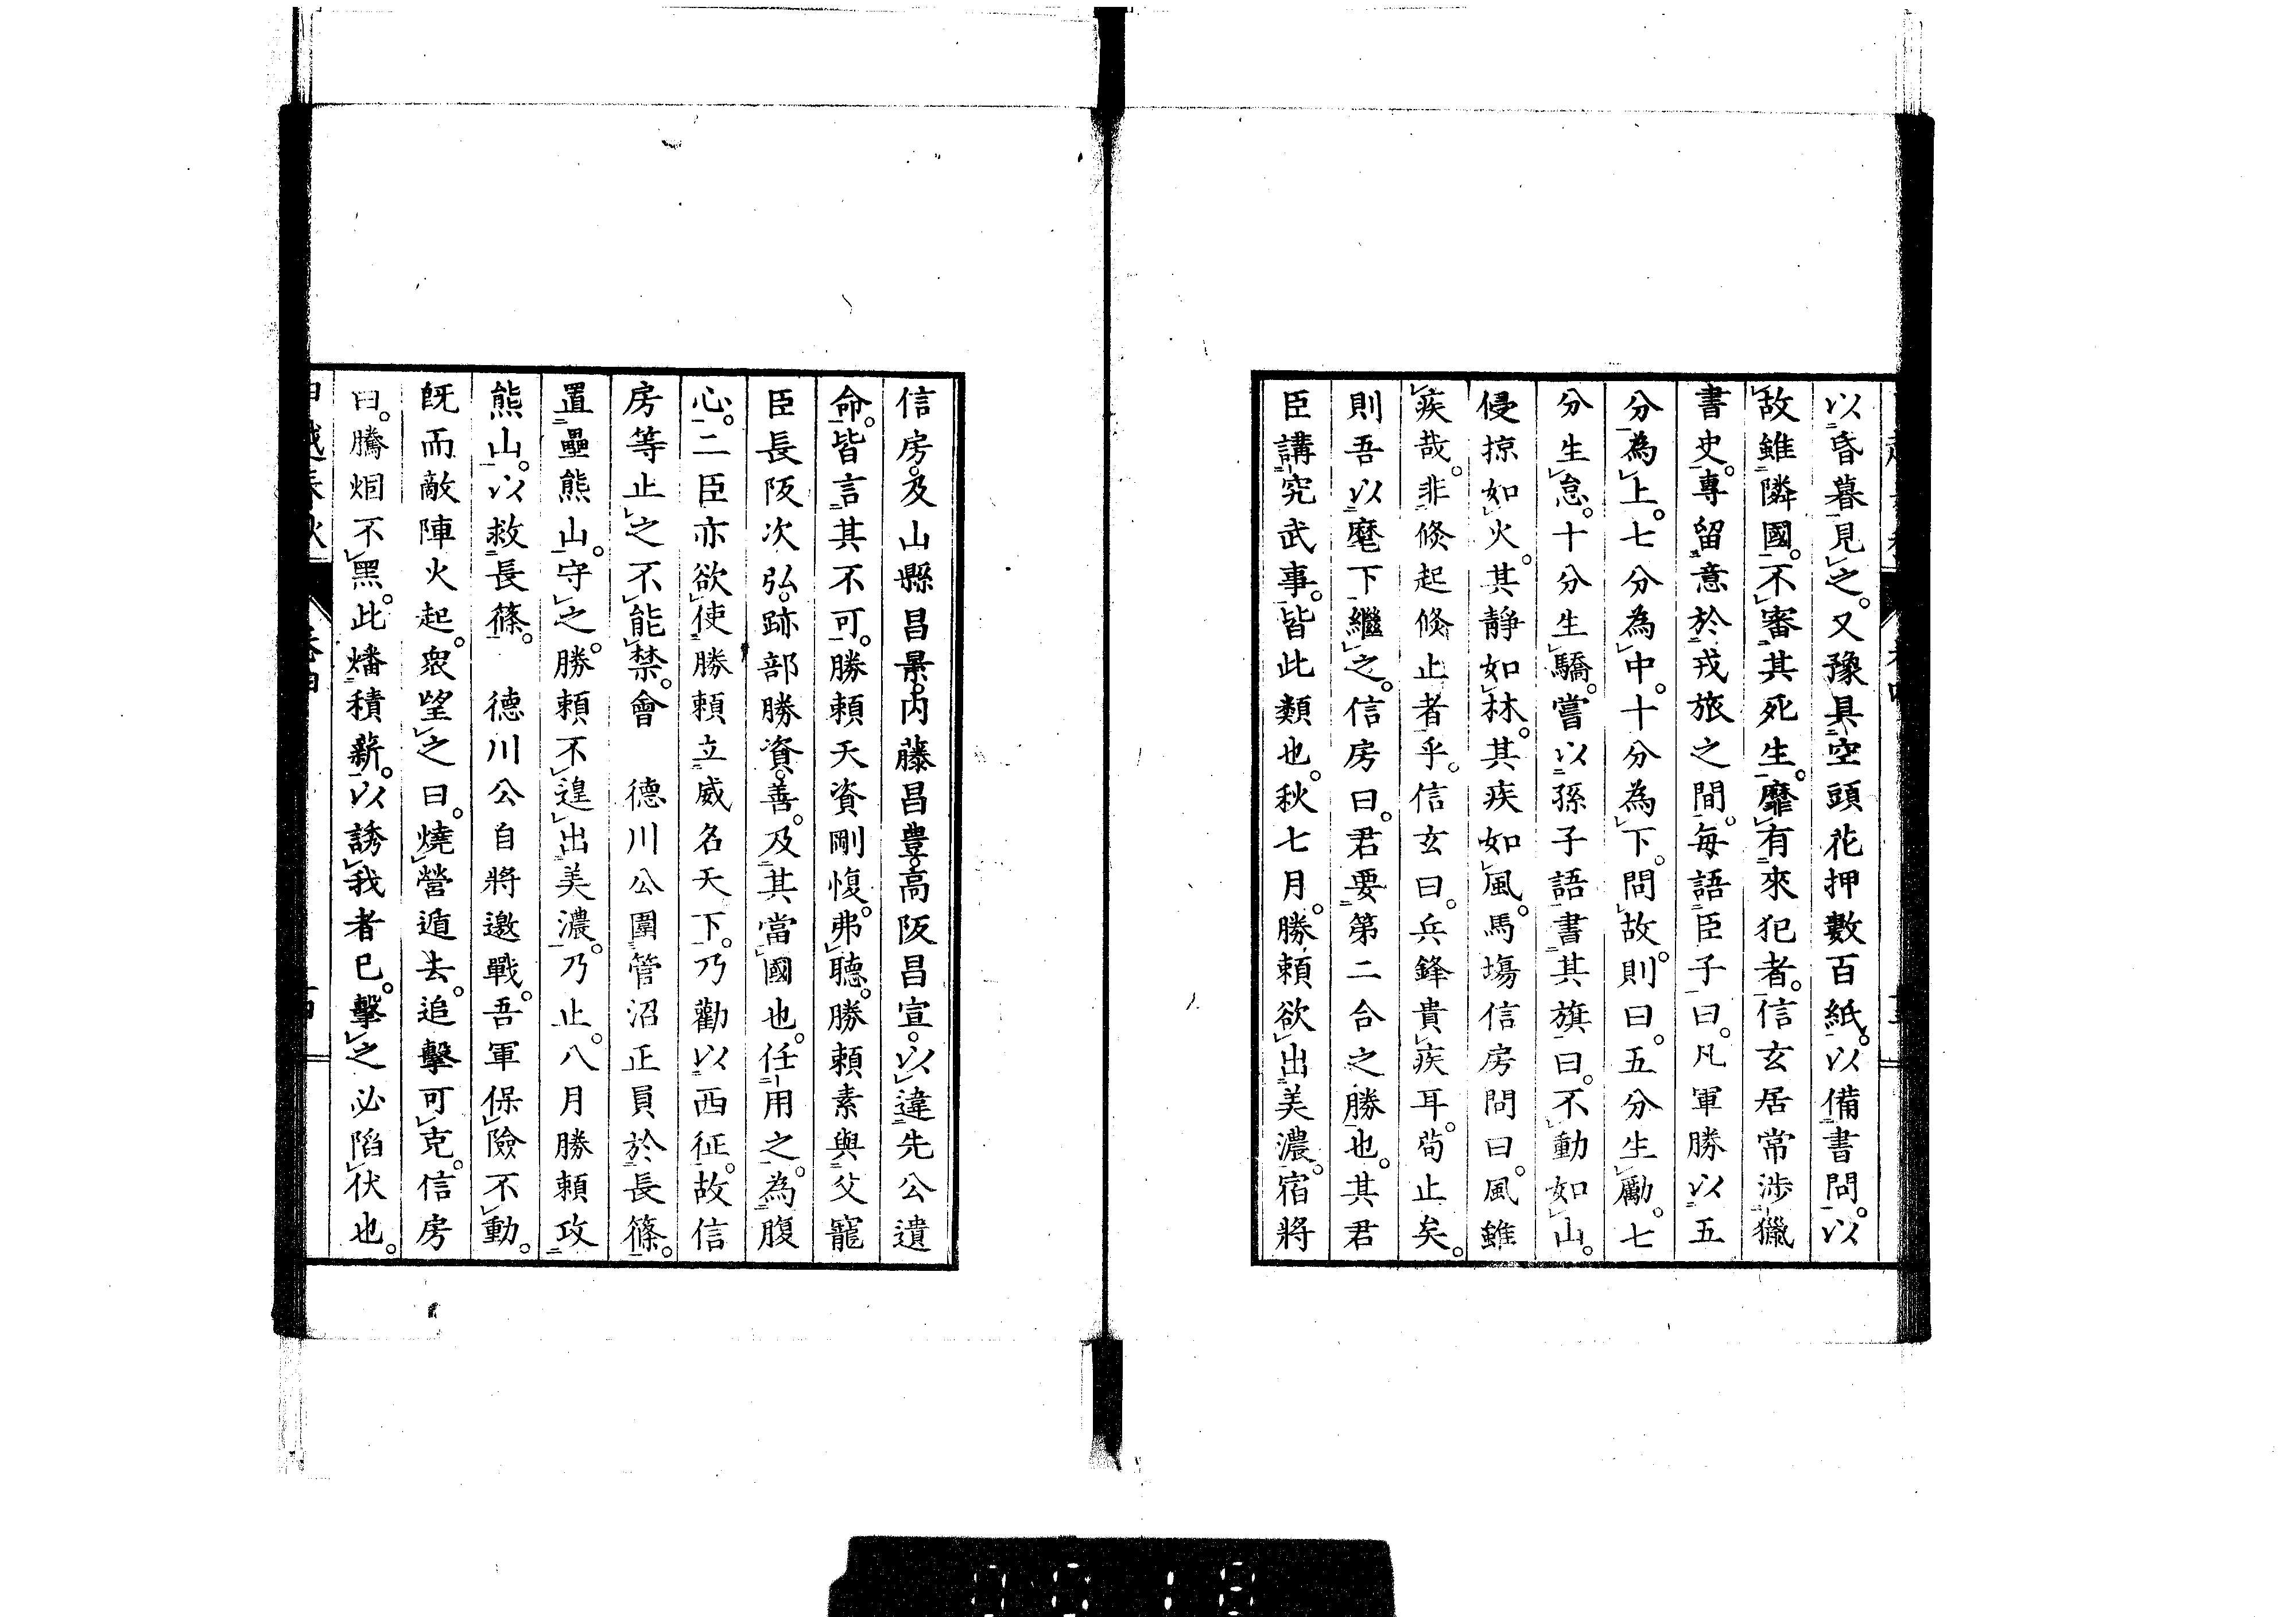 以昏暮見之。又豫具空頭花押數百紙。以備書問。以
故雖隣國。不審其死生。靡有來犯者。信玄居常渉獵
書史。專留意於戎旅之間。每語臣子曰。凡軍勝以五
分為上。七分為中。十分為下。問故則曰。五分生勵。七
分生怠。十分生驕。嘗以孫子語書其旗曰。不動如山。
侵掠如火。其靜如林。其疾如風。馬塲信房問曰。風雖
疾哉。非倐起倐止者乎。信玄曰。兵鋒貴疾耳。苟止矣。
則吾以麾下繼之。信房曰。君要第二合之勝也。其君
臣講究武事。皆此類也。秋七月。勝頼欲出美濃。宿將
信房。及山縣昌景。内藤昌豊。高阪昌宣。以違先公遺
命。皆言其不可。勝頼天資剛愎。弗聽。勝頼素與父寵
臣長阪次弘。跡部勝資。善。及其當國也。任用之。為腹
心。二臣亦欲使勝頼立威名天下。乃勸以西征。故信
房等止之不能禁。會　德川公圍管沼正員於長篠。
置壘熊山。守之。勝頼不遑出美濃。乃止。八月勝頼攻
熊山。以救長篠。　德川公自將邀戰。吾軍保險不動。
旣而敵陣火起。衆望之曰。燒營遁去。追擊可克。信房
曰。騰烟不黑。此燔積薪。以誘我者已。擊之必陷伏也。
越春秋